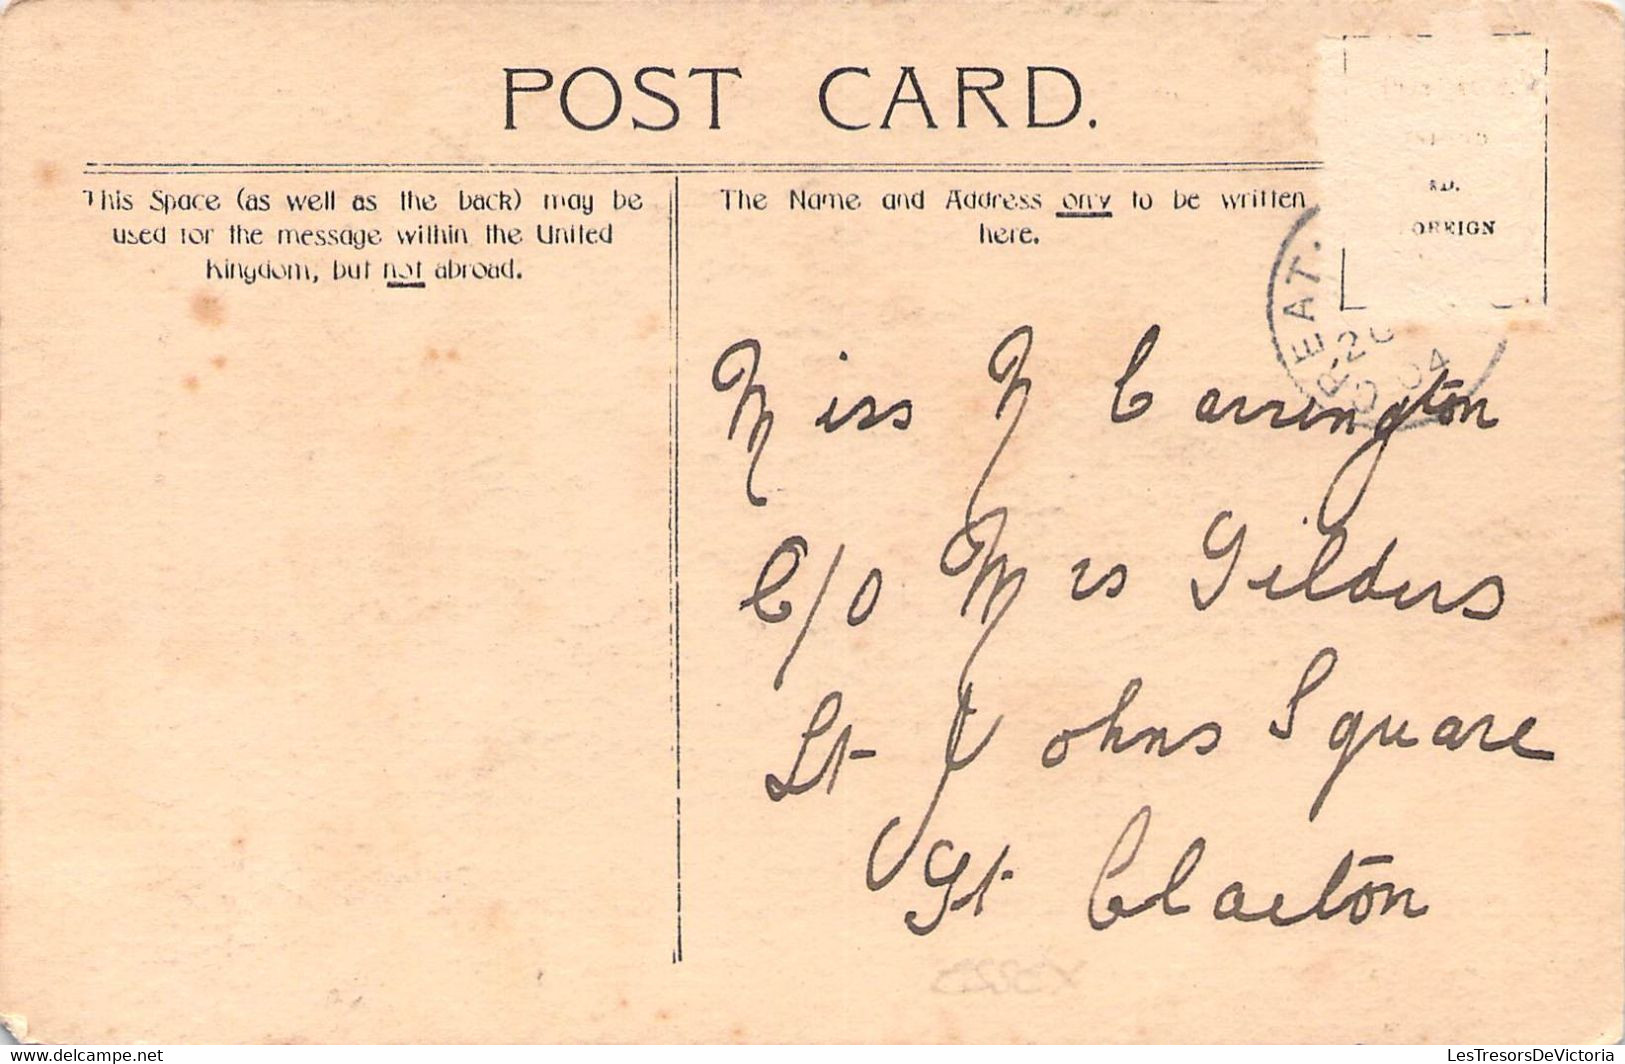 POST CARD.
This Space (as well as the back) may be
used for the message within the United
Kingdom, but not abroad.
The Name and Address only to be written
here.
RD.
FOREIGN
GREAT.
04
Miss N Carrington
C/O Mrs Gilders
St Johns Square
Gt Clacton
X3825
Image ancienne - Ancient picture
LesTresorsDeVictoria